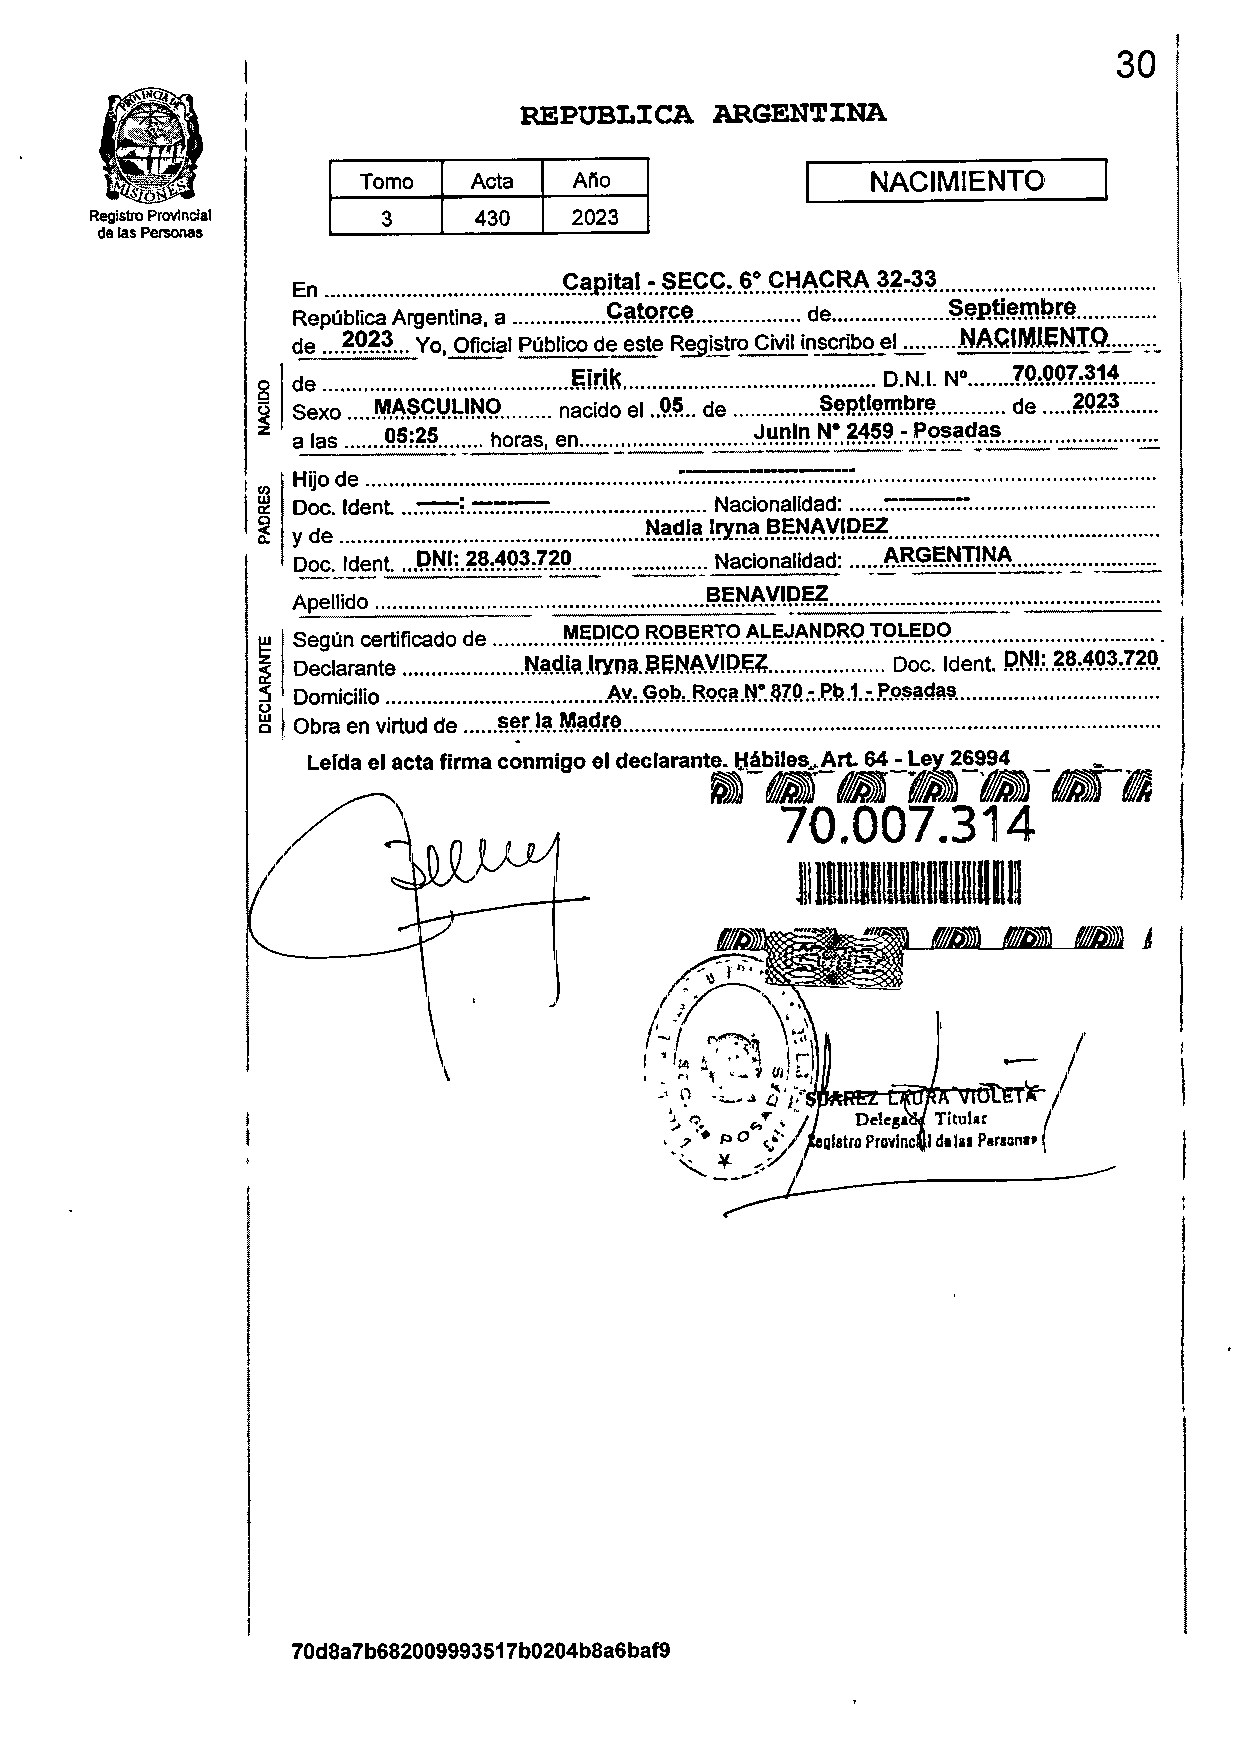 30
PROVINCIA DE
MISIONES
Registro Provincial
de las Personas
REPUBLICA ARGENTINA
Tomo Acta Año
3 430 2023
NACIMIENTO
En Capital - SECC. 6° CHACRA 32-33
República Argentina, a Catorce de Septiembre
de 2023 Yo, Oficial Público de este Registro Civil inscribo el NACIMIENTO
NACIDO
de Eirik D.N.I. Nº 70.007.314
Sexo MASCULINO nacido el 05 de Septiembre de 2023
a las 05:25 horas, en Junin N° 2459 - Posadas
PADRES
Hijo de ----------
Doc. Ident. ----: ------- Nacionalidad: -------
y de Nadia Iryna BENAVIDEZ
Doc. Ident. DNI: 28.403.720 Nacionalidad: ARGENTINA
Apellido BENAVIDEZ
DECLARANTE
Según certificado de MEDICO ROBERTO ALEJANDRO TOLEDO
Declarante Nadia Iryna BENAVIDEZ Doc. Ident. DNI: 28.403.720
Domicilio Av. Gob. Roca N° 870 - Pb 1 - Posadas
Obra en virtud de ser la Madre
Leída el acta firma conmigo el declarante. Hábiles. Art. 64 - Ley 26994
70.007.314
POSADAS
SUAREZ LAURA VIOLETA
Delegada Titular
Registro Provincial de las Personas
70d8a7b682009993517b0204b8a6baf9